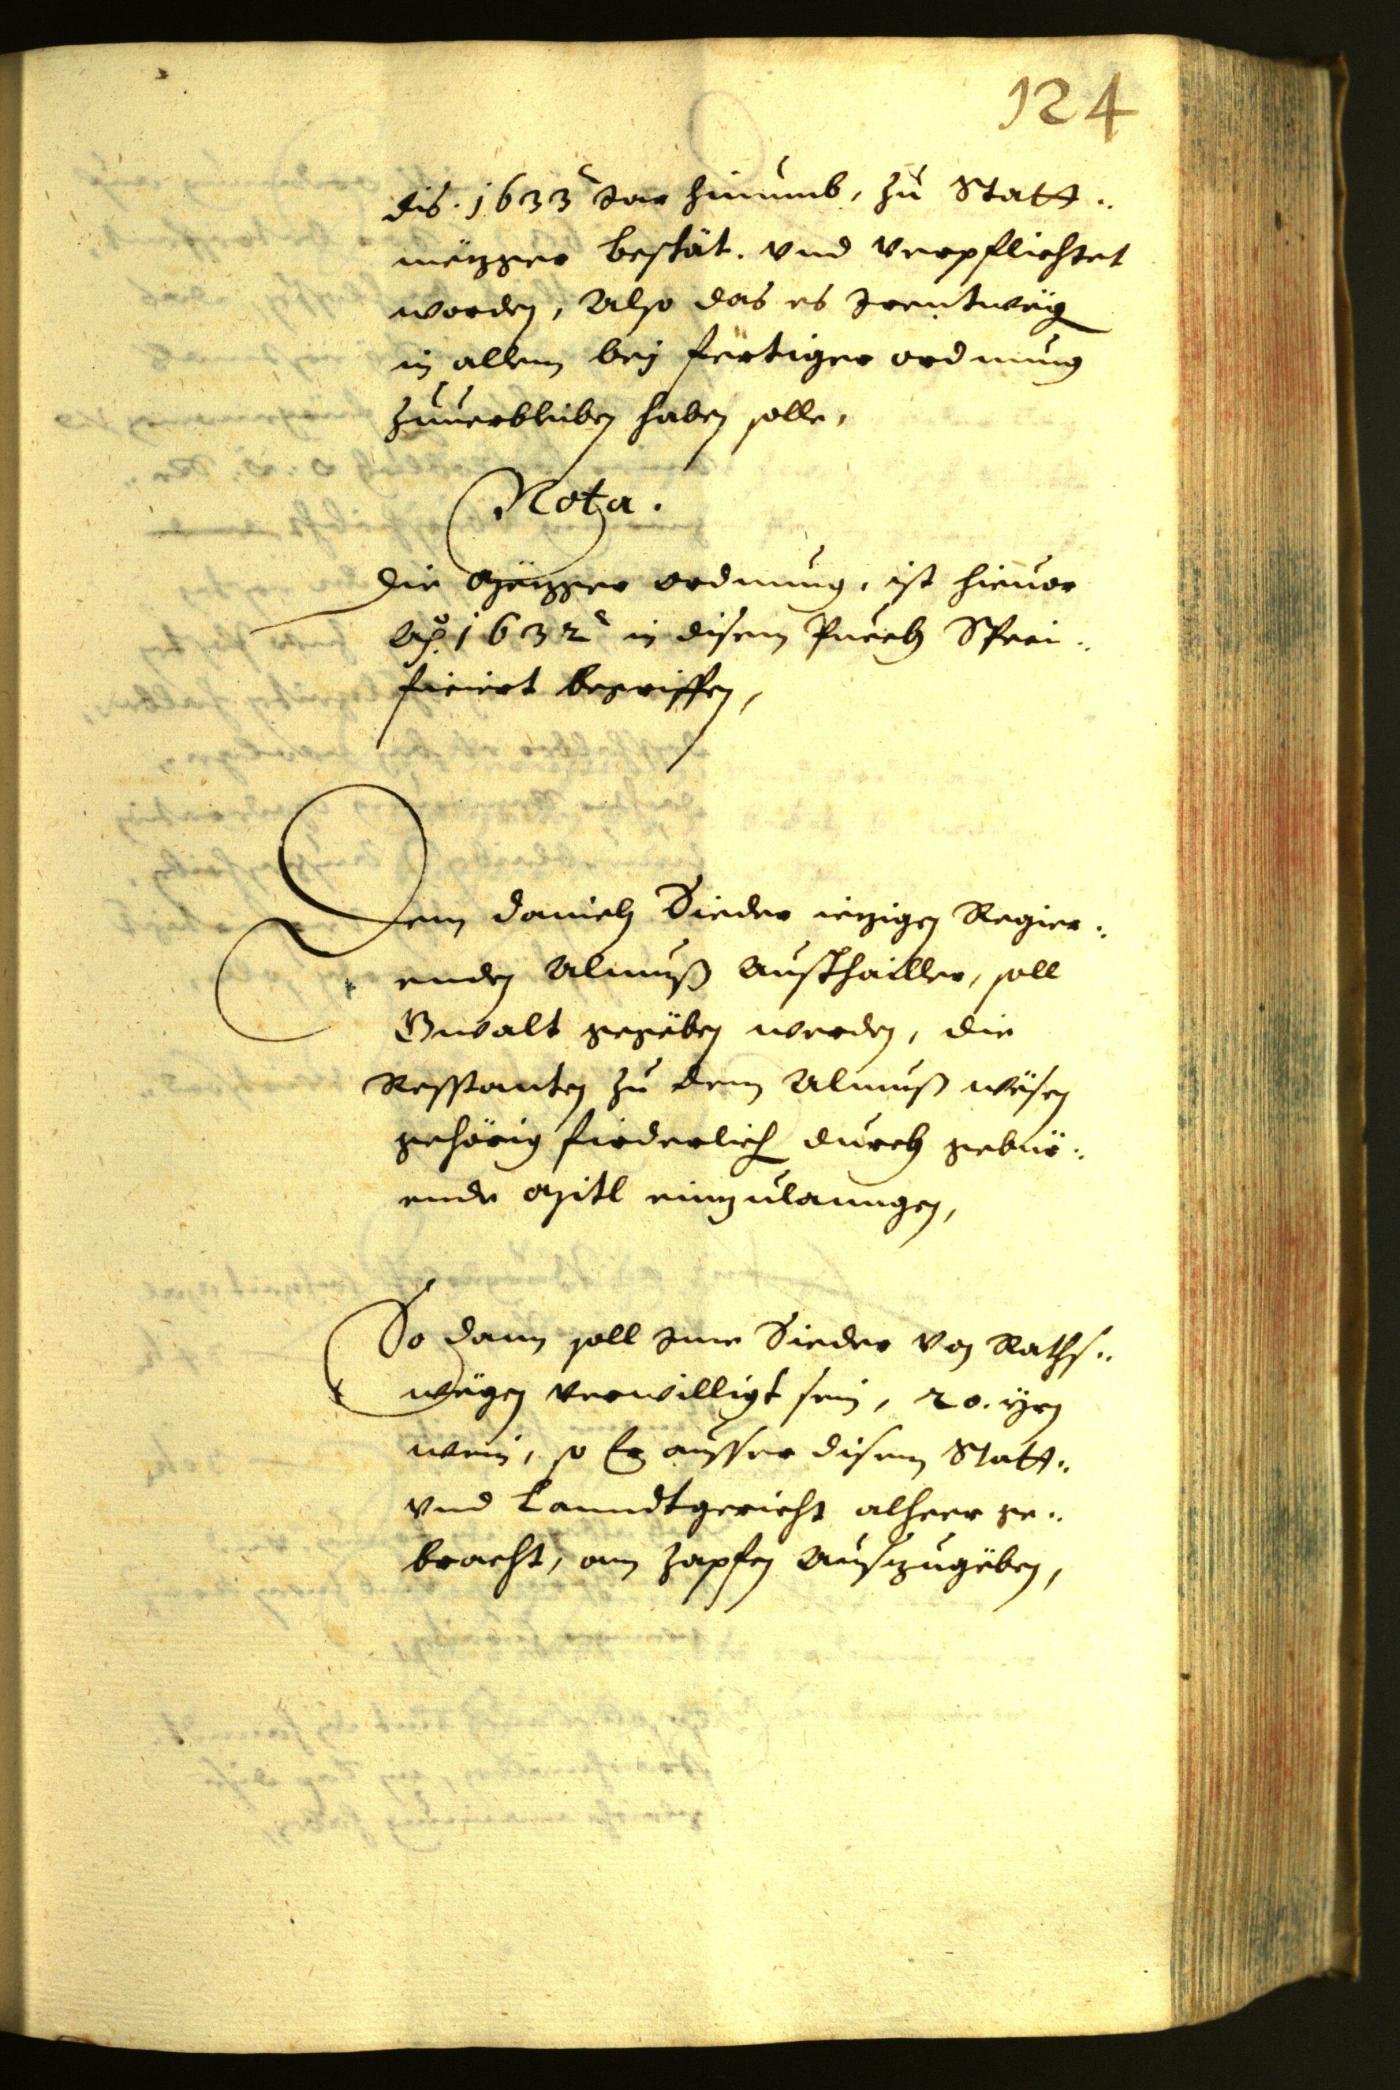 124
dis. 1633 Jar hinumb, zu Statt-
mëzger bestät. vnd verpflichtet
worden, Also das es Jrentwëg
in allem bej fertiger ordnung
zuuerbleiben haben solle,
Nota.
Die Mëzger ordnung, ist hieuor
Aõ. 1632 in disem Puech Speci-
ficiert begriffen,
Dem Daniel Sieder iezigen Regier-
enden Almueß Austhailler, soll
Gwalt gegëben werden, die
Resstanten zu dem Almueß wësen
gehörig firderlich durch gebür-
ende Mitl einzulanngen,
So dann soll Jme Sieder von Raths-
wëgen verwilligt sein, 20. yrn
wein, so Er ausser disem Statt-
vnd Lanndtgericht alheer ge-
bracht, am zapfen auszugëben,